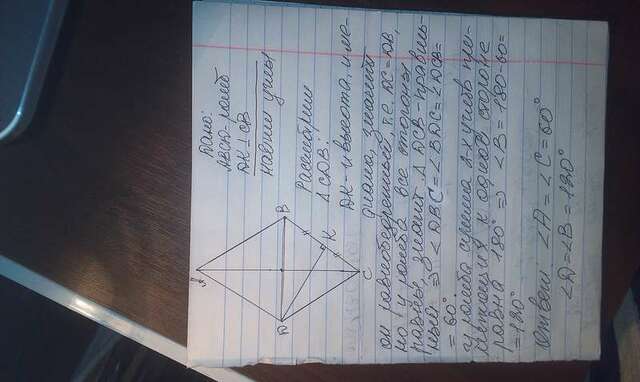 Дано:
ABCD - ромб
DK ⊥ CB
Найти углы
A
B
K
C
D
Рассмотрим
Δ CDB:
DK - и высота, и ме-
диана, значит
он равнобедренный, т.е. DC = DB,
но у ромба все стороны
равны, значит Δ DCB - правиль-
ный ⇒ ∠DBC = ∠BDC = ∠DCB =
= 60°
у ромба сумма 2-х углов при-
лежащих к одной стороне
равна 180° ⇒ ∠B = 180 - 60 =
= 120°
Ответ: ∠A = ∠C = 60°
∠D = ∠B = 120°